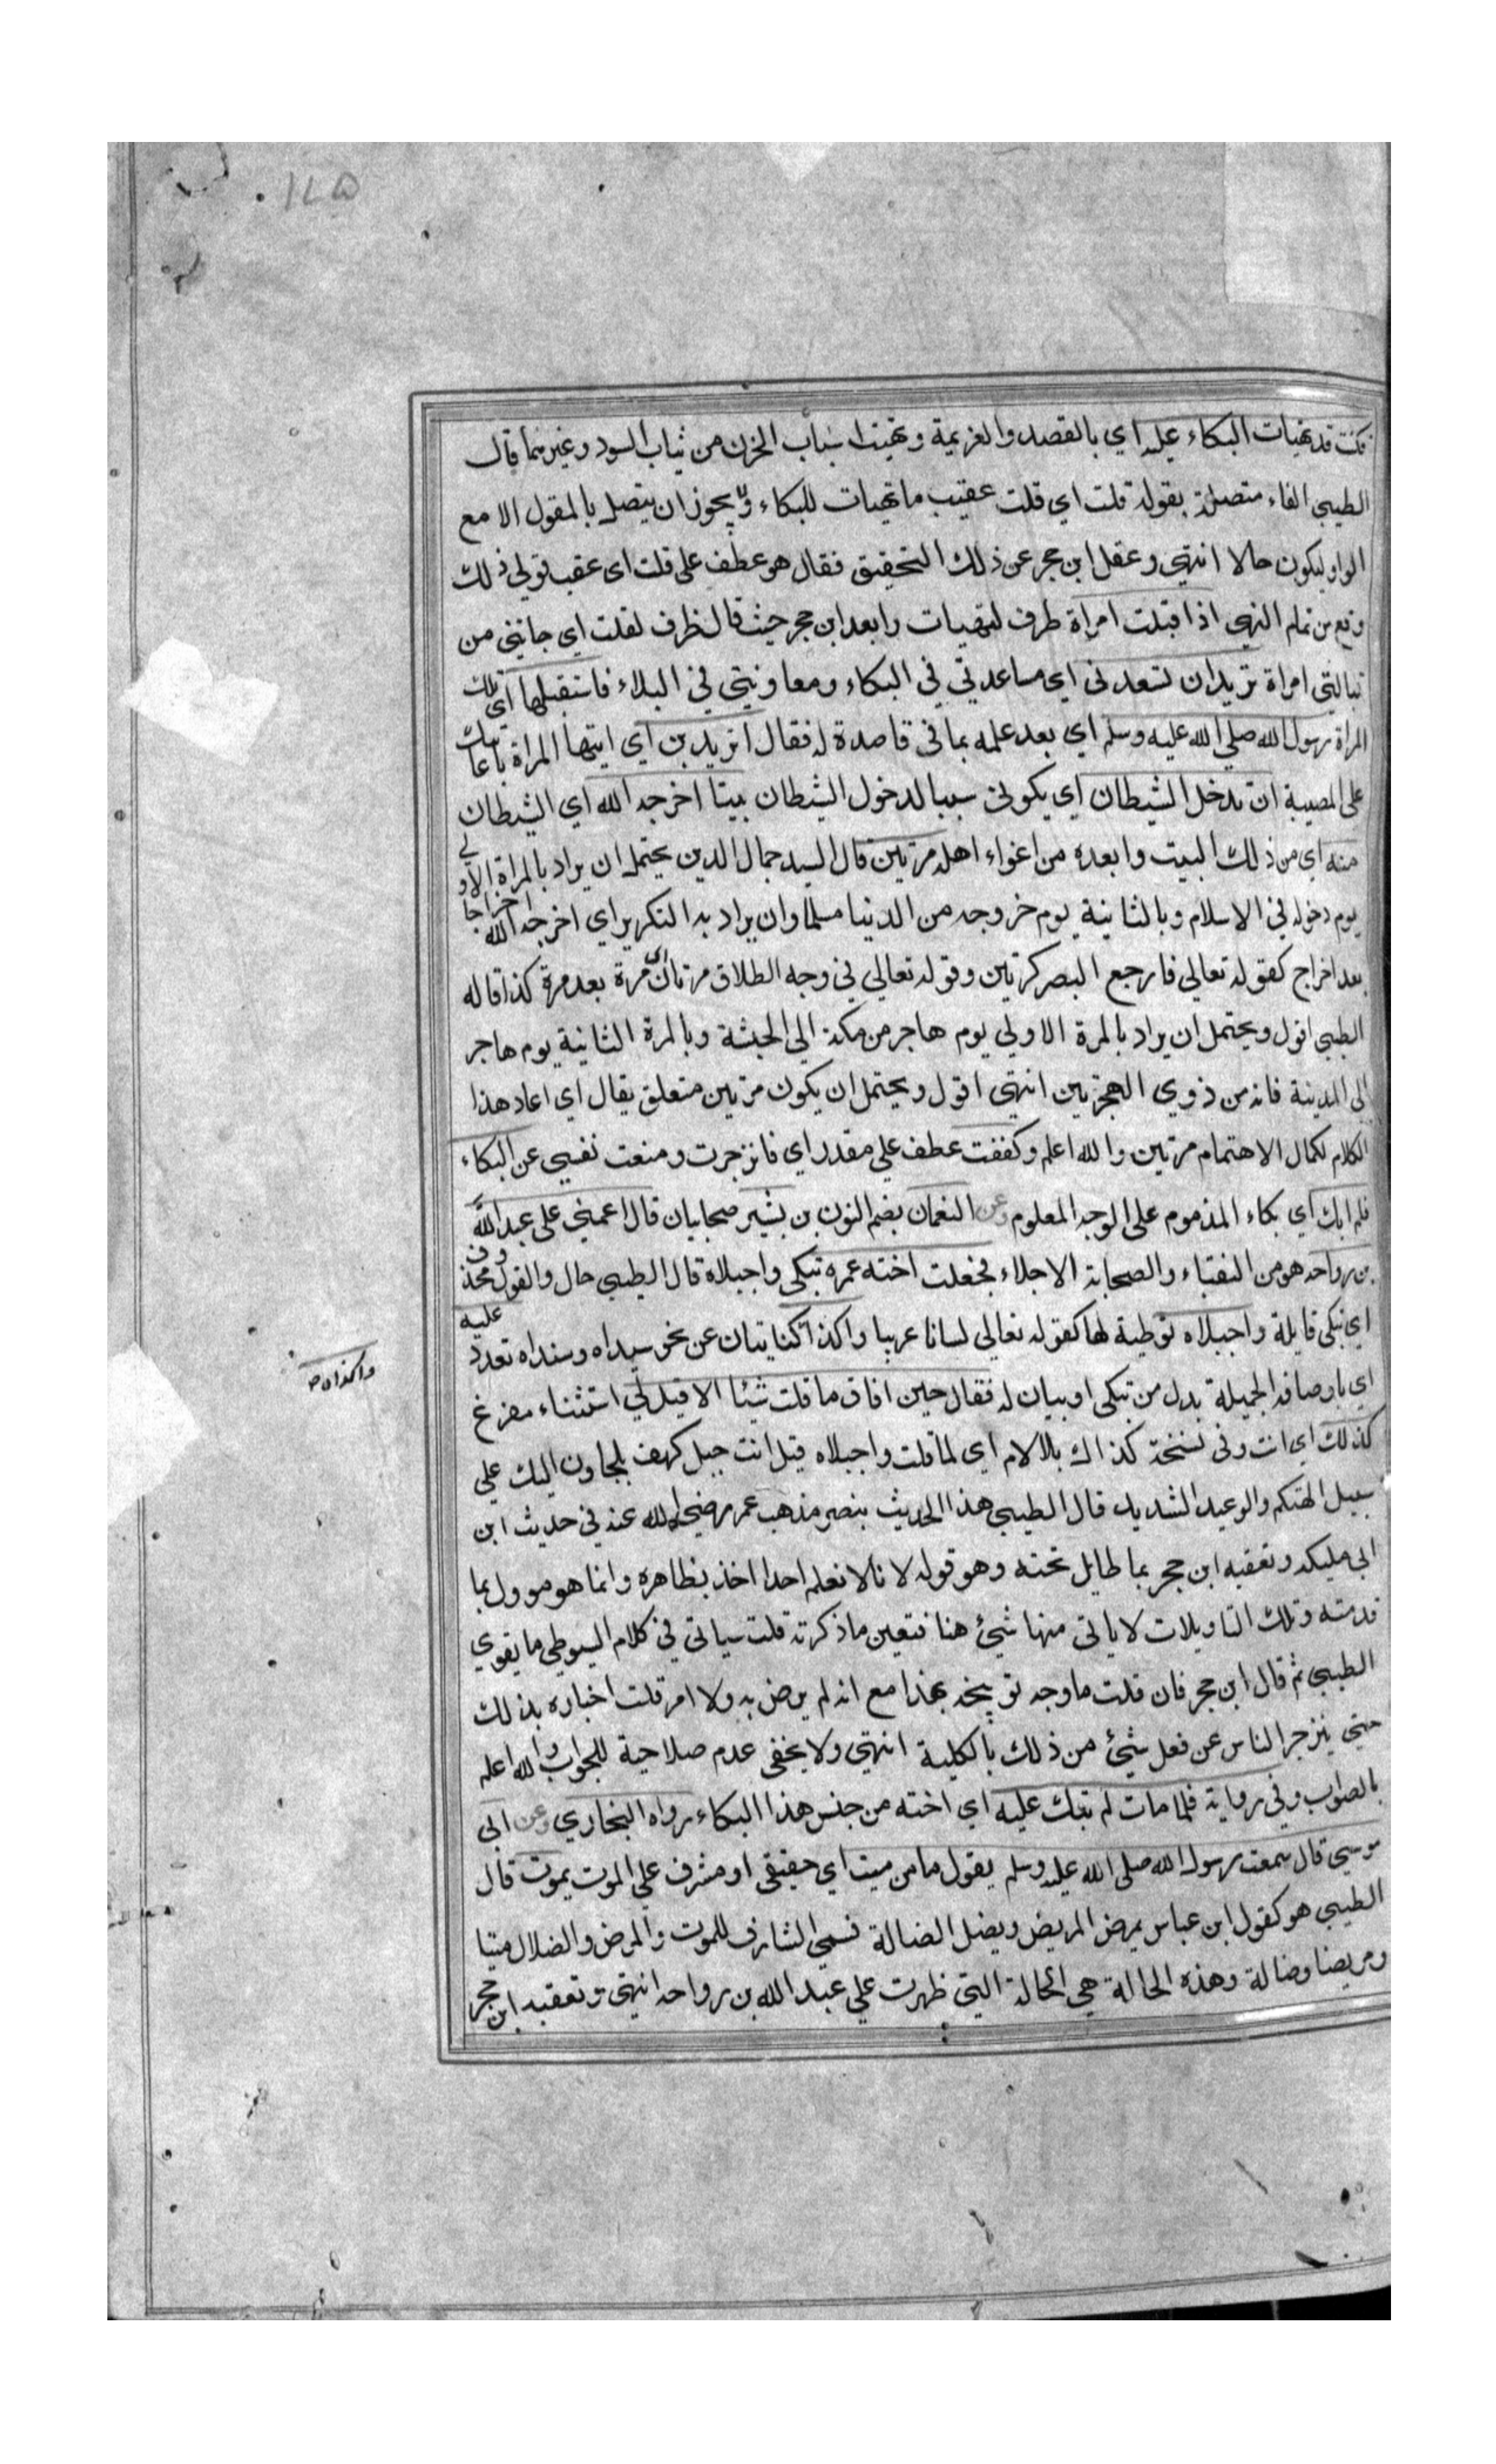 فكنت قد تهيات البكاء عليه اي بالقصد والعزيمة وتهيئة اسباب الحزن من ثياب السود وغيرهما قال
الطيبي الفاء متصلة بقوله قلت اي قلت عقيب ما تهيات للبكاء ولا يجوز ان يتصل بالمقول الا مع
الواو ليكون حالا انتهى وغفل ابن حجر عن ذلك التحقيق فقال هو عطف على قلت اى عقب قولي ذلك
وقع من تمام النهى اذ اقبلت امراة ظرف لتهيات وابعد ابن حجر حيث قال ظرف لقلت اي جانبني من
تبالتي امراة تريد ان تسعدنى اى مساعدتي في البكاء ومعاونتي في البلاء فاستقبلها اي تلك
المراة رسول الله صلى الله عليه وسلم اي بعد علمه بما في قاصدة له فقال اتريدين اي ايتها المراة باعانتك
على المصيبة ان تدخل الشيطان اي يكونى سببا لدخول الشيطان بيتا اخرجه الله اي الشيطان
منه اى من ذلك البيت وابعده من اغواء اهله مرتين قال السيد جمال الدين يحتمل ان يراد بالمراة الاولي
يوم دخوله في الاسلام وبالثانية يوم خروجه من الدنيا مسلما وان يراد به التكرير اي اخرجه الله اخراجا
بعد اخراج كقوله تعالي فارجع البصر كرتين وقوله تعالي في وجه الطلاق مرتان اي مرة بعد مرة كذا قاله
الطيبي اقول ويحتمل ان يراد بالمرة الاولي يوم هاجر من مكة الي الحبشة وبالمرة الثانية يوم هاجر
الى المدينة فانه من ذوي الهجرتين انتهى اقول ويحتمل ان يكون مرتين متعلق بقال اي اعاد هذا
الكلام لكمال الاهتمام مرتين والله اعلم وكففت عطف علي مقدر اي فانزجرت ومنعت نفسي عن البكاء
فلم ابك اي بكاء المذموم على الوجه المعلوم وعن النعمان بضم النون بن بشير صحابيان قال اغمي على عبد الله
بن رواحه هو من النقباء والصحابة الاجلاء فجعلت اخته عمره تبكى واجبلاه قال الطيبي حال والقول محذوف
اي تبكى قايلة واجبلاه توطية لها كقوله تعالي لسانا عربيا واكذا كنايتان عن نحو سيداه وسنداه تعدد عليه
واكذاه صح
اي باوصافه الجميلة بدل من تبكى او بيان له فقال حين افاق ما قلت شيئا الا قيل لي استثناء مفرغ
كذلك اي انت وفى نسخة كذاك بلا لام اي لما قلت واجبلاه قيل انت جبل كهف يلجاون اليك علي
سبيل التهكم والوعيد الشديد قال الطيبي هذا الحديث ينصر مذهب عمر رضي الله عنه في حديث ابن
ابى مليكه وتعقبه ابن حجر بما طايل تحته وهو قوله لانا لا نعلم احدا اخذ بظاهره وانما هو موول بما
قدمته وتلك التاويلات لا ياتى منها شيئ هنا فتعين ما ذكرته قلت سياتي في كلام السيوطي ما يقوي
الطيبي ثم قال ابن حجر فان قلت ما وجه توبيخه بهذا مع انه لم يرض به ولا امر قلت اخباره بذلك
حتى ينزجر الناس عن فعل شيئ من ذلك بالكلية انتهى ولا يخفى عدم صلاحية للجواب والله اعلم
بالصواب وفي رواية فلما مات لم تبك عليه اي اخته من جنس هذا البكاء رواه البخاري وعن ابى
موسي قال سمعت رسول الله صلى الله عليه وسلم يقول ما من ميت اي حقيقي او مشرف علي الموت يموت قال
الطيبي هو كقول ابن عباس يمرض المريض ويضل الضالة فسمي الشارف للموت والمرض والضلال ميتا
ومريضا وضالة وهذه الحالة هي الحالة التي ظهرت علي عبد الله بن رواحه انتهى وتعقبه ابن حجر